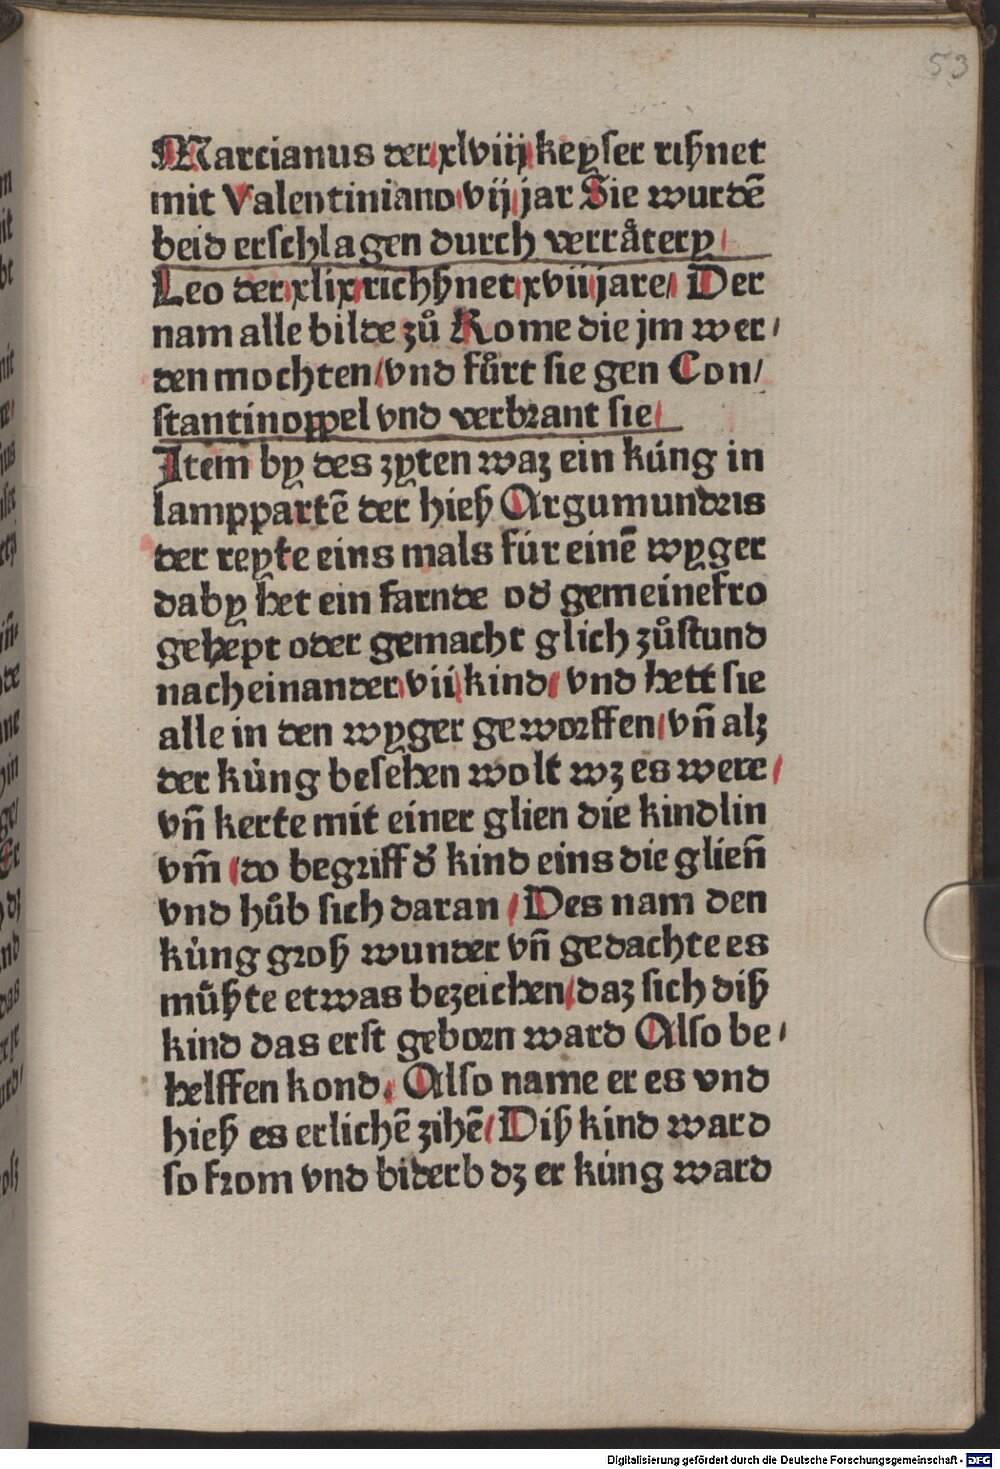 53
Marcianus der xlviij keyser rißnet
mit Valentiniano vij jar Sie wurdē
beid erschlagen durch verråtery
Leo der xlix richßnet xvii jare/ Der
nam alle bilde zů Rome die jm wer/
den mochten/vnd fůrt sie gen Con/
stantinoppel vnd verbrant sie/
Item by des zyten waz ein kúng in
lamppartē der hieß Argumundris
der reyte eins mals fúr einē wyger
daby het ein farnde od̄ gemeinefro
gehept oder gemacht glich zůstund
nacheinander vii kind/ vnd hett sie
alle in den wyger geworffen/vn̄ alz
der kúng besehen wolt wz es were/
vn̄ kerte mit einer glien die kindlin
vm̄ /do begriff d̄ kind eins die glien̄
vnd hůb sich daran /Des nam den
kúng groß wunder vn̄ gedachte es
můßte etwas bezeichen/daz sich diß
kind das erst geborn ward Also be/
helffen kond. Also name er es vnd
hieß es erlichē zihē/ Diß kind ward
so from vnd biderb dz er kúng ward
Digitalisierung gefördert durch die Deutsche Forschungsgemeinschaft - DFG